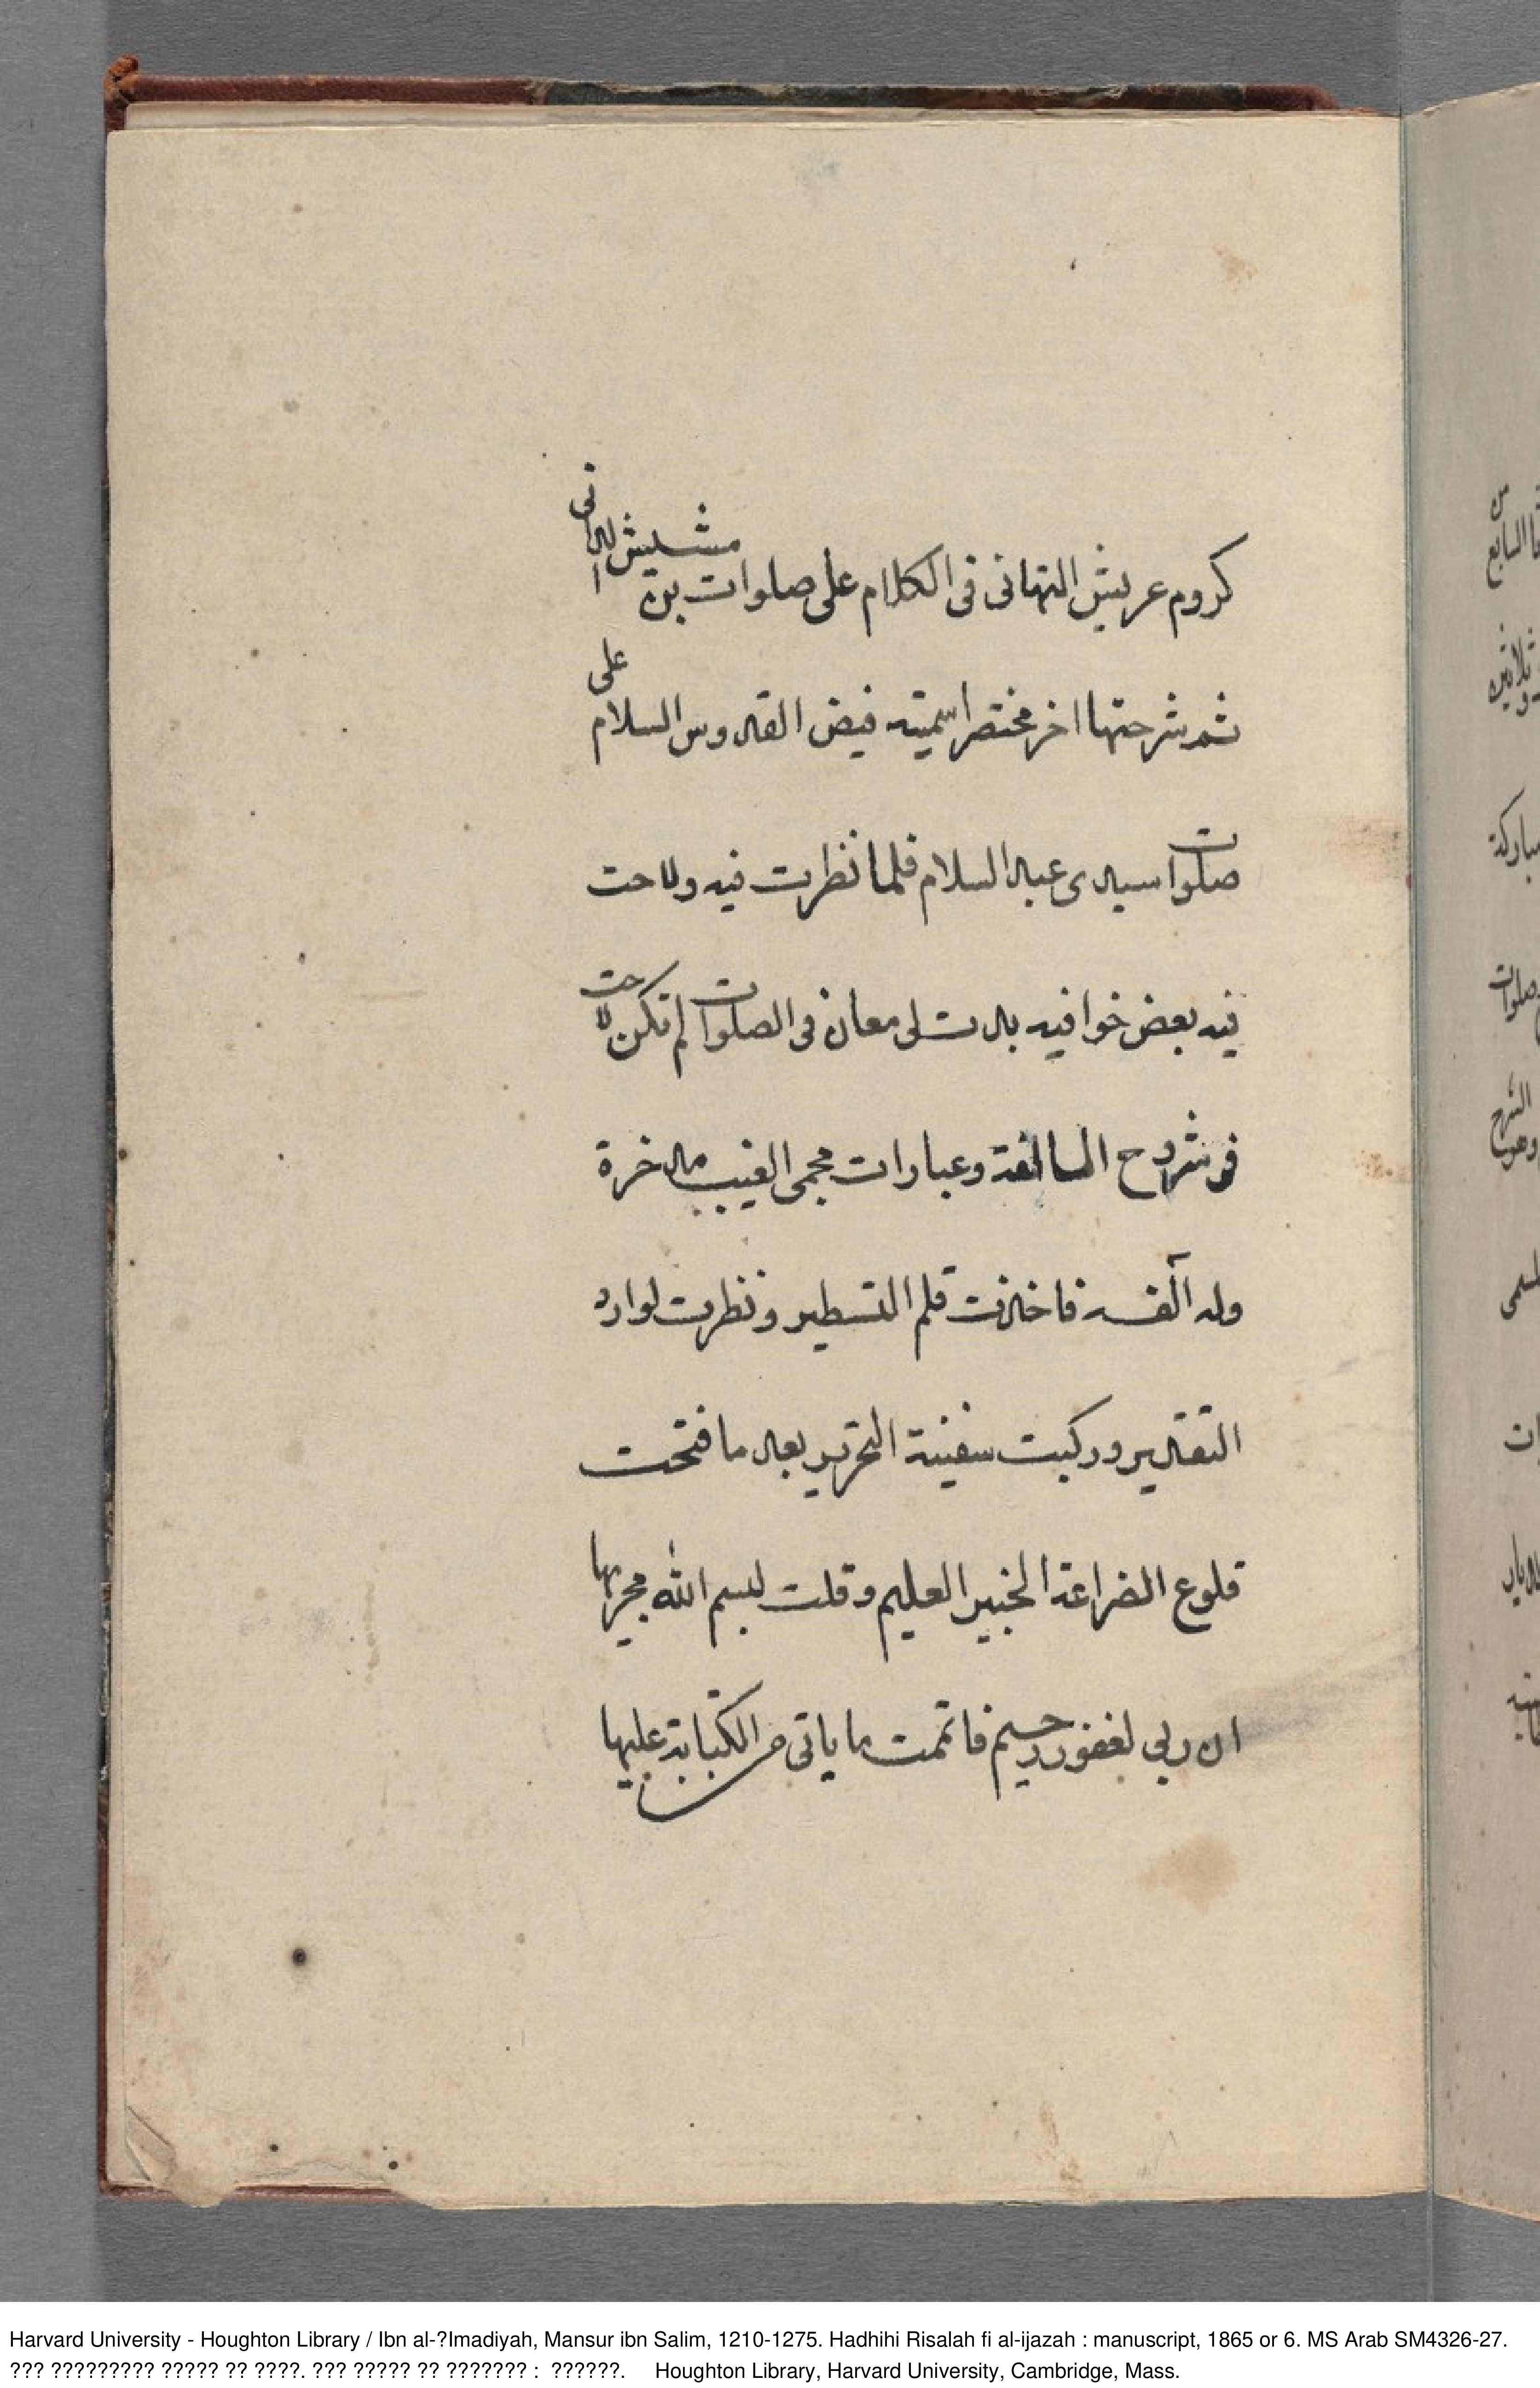 كروم عريش التهانى فى الكلام على صلوات بن مشيش الدانى
ثم شرحتها اخر مختصرا سميته فيض القدوس السلام على
صلوات سيدى عبد السلام فلما نظرت فيه ولاحت
فيه بعض خوافيه بدت لى معان فى الصلوات لم تكن لاحت
فى شروح السالفة وعبارات مجمى الغيب مدخرة
وله آلفه فاخذت قلم التسطير ونظرت لوارد
التقدير وركبت سفينة التحرير بعد ما فتحت
قلوع الضراعة الخبير العليم وقلت بسم الله مجريها
ان ربى لغفور رحيم فاتممت ما ياتى من الكتابة عليها
من
السابع
ثلاثين
مباركة
صلوات
الشرح
وهو
Harvard University - Houghton Library / Ibn al-?Imadiyah, Mansur ibn Salim, 1210-1275. Hadhihi Risalah fi al-ijazah : manuscript, 1865 or 6. MS Arab SM4326-27.
??? ????????? ????? ?? ????. ??? ????? ?? ??????? : ??????. Houghton Library, Harvard University, Cambridge, Mass.